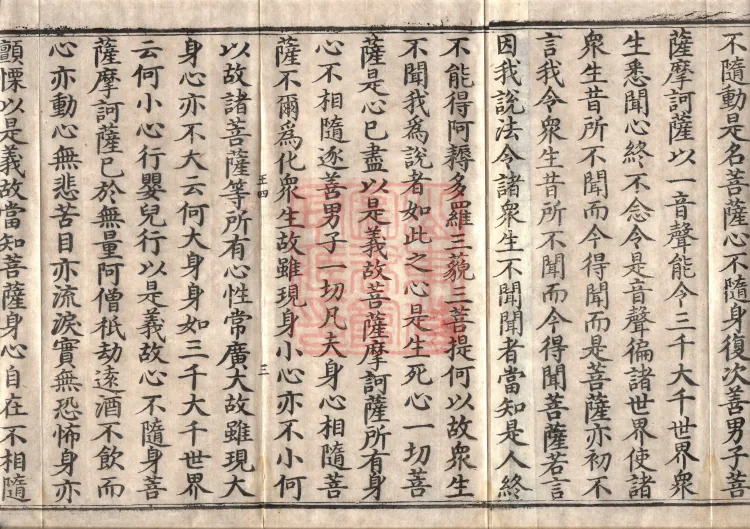 不隨動是名菩薩心不隨身復次善男子菩
薩摩訶薩以一音聲能令三千大千世界衆
生悉聞心終不念令是音聲徧諸世界使諸
衆生昔所不聞而今得聞而是菩薩亦初不
言我令衆生昔所不聞而今得聞菩薩若言
因我說法令諸衆生不聞聞者當知是人終
不能得阿耨多羅三藐三菩提何以故衆生
不聞我爲說者如此之心是生死心一切菩
薩是心已盡以是義故菩薩摩訶薩所有身
心不相隨逐善男子一切凡夫身心相隨菩
薩不爾爲化衆生故雖現身小心亦不小何
王四 三
以故諸菩薩等所有心性常廣大故雖現大
身心亦不大云何大身身如三千大千世界
云何小心行嬰兒行以是義故心不隨身菩
薩摩訶薩已於無量阿僧祇劫遠酒不飲而
心亦動心無悲苦目亦流淚實無恐怖身亦
顫慄以是義故當知菩薩身心自在不相隨